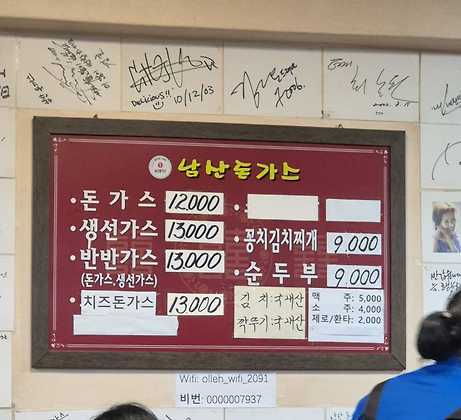 Delicious!!
10/12/03
2006.
남산돈가스
· 돈가스 12,000
· 생선가스 13,000
· 반반가스 13,000
(돈가스,생선가스)
· 치즈돈가스 13,000
· 꽁치김치찌개 9,000
· 순두부 9,000
김치:국내산
깍뚜기:국내산
맥주: 5,000
소주: 4,000
제로/환타: 2,000
Wifi: olleh_wifi_2091
비번: 0000007937